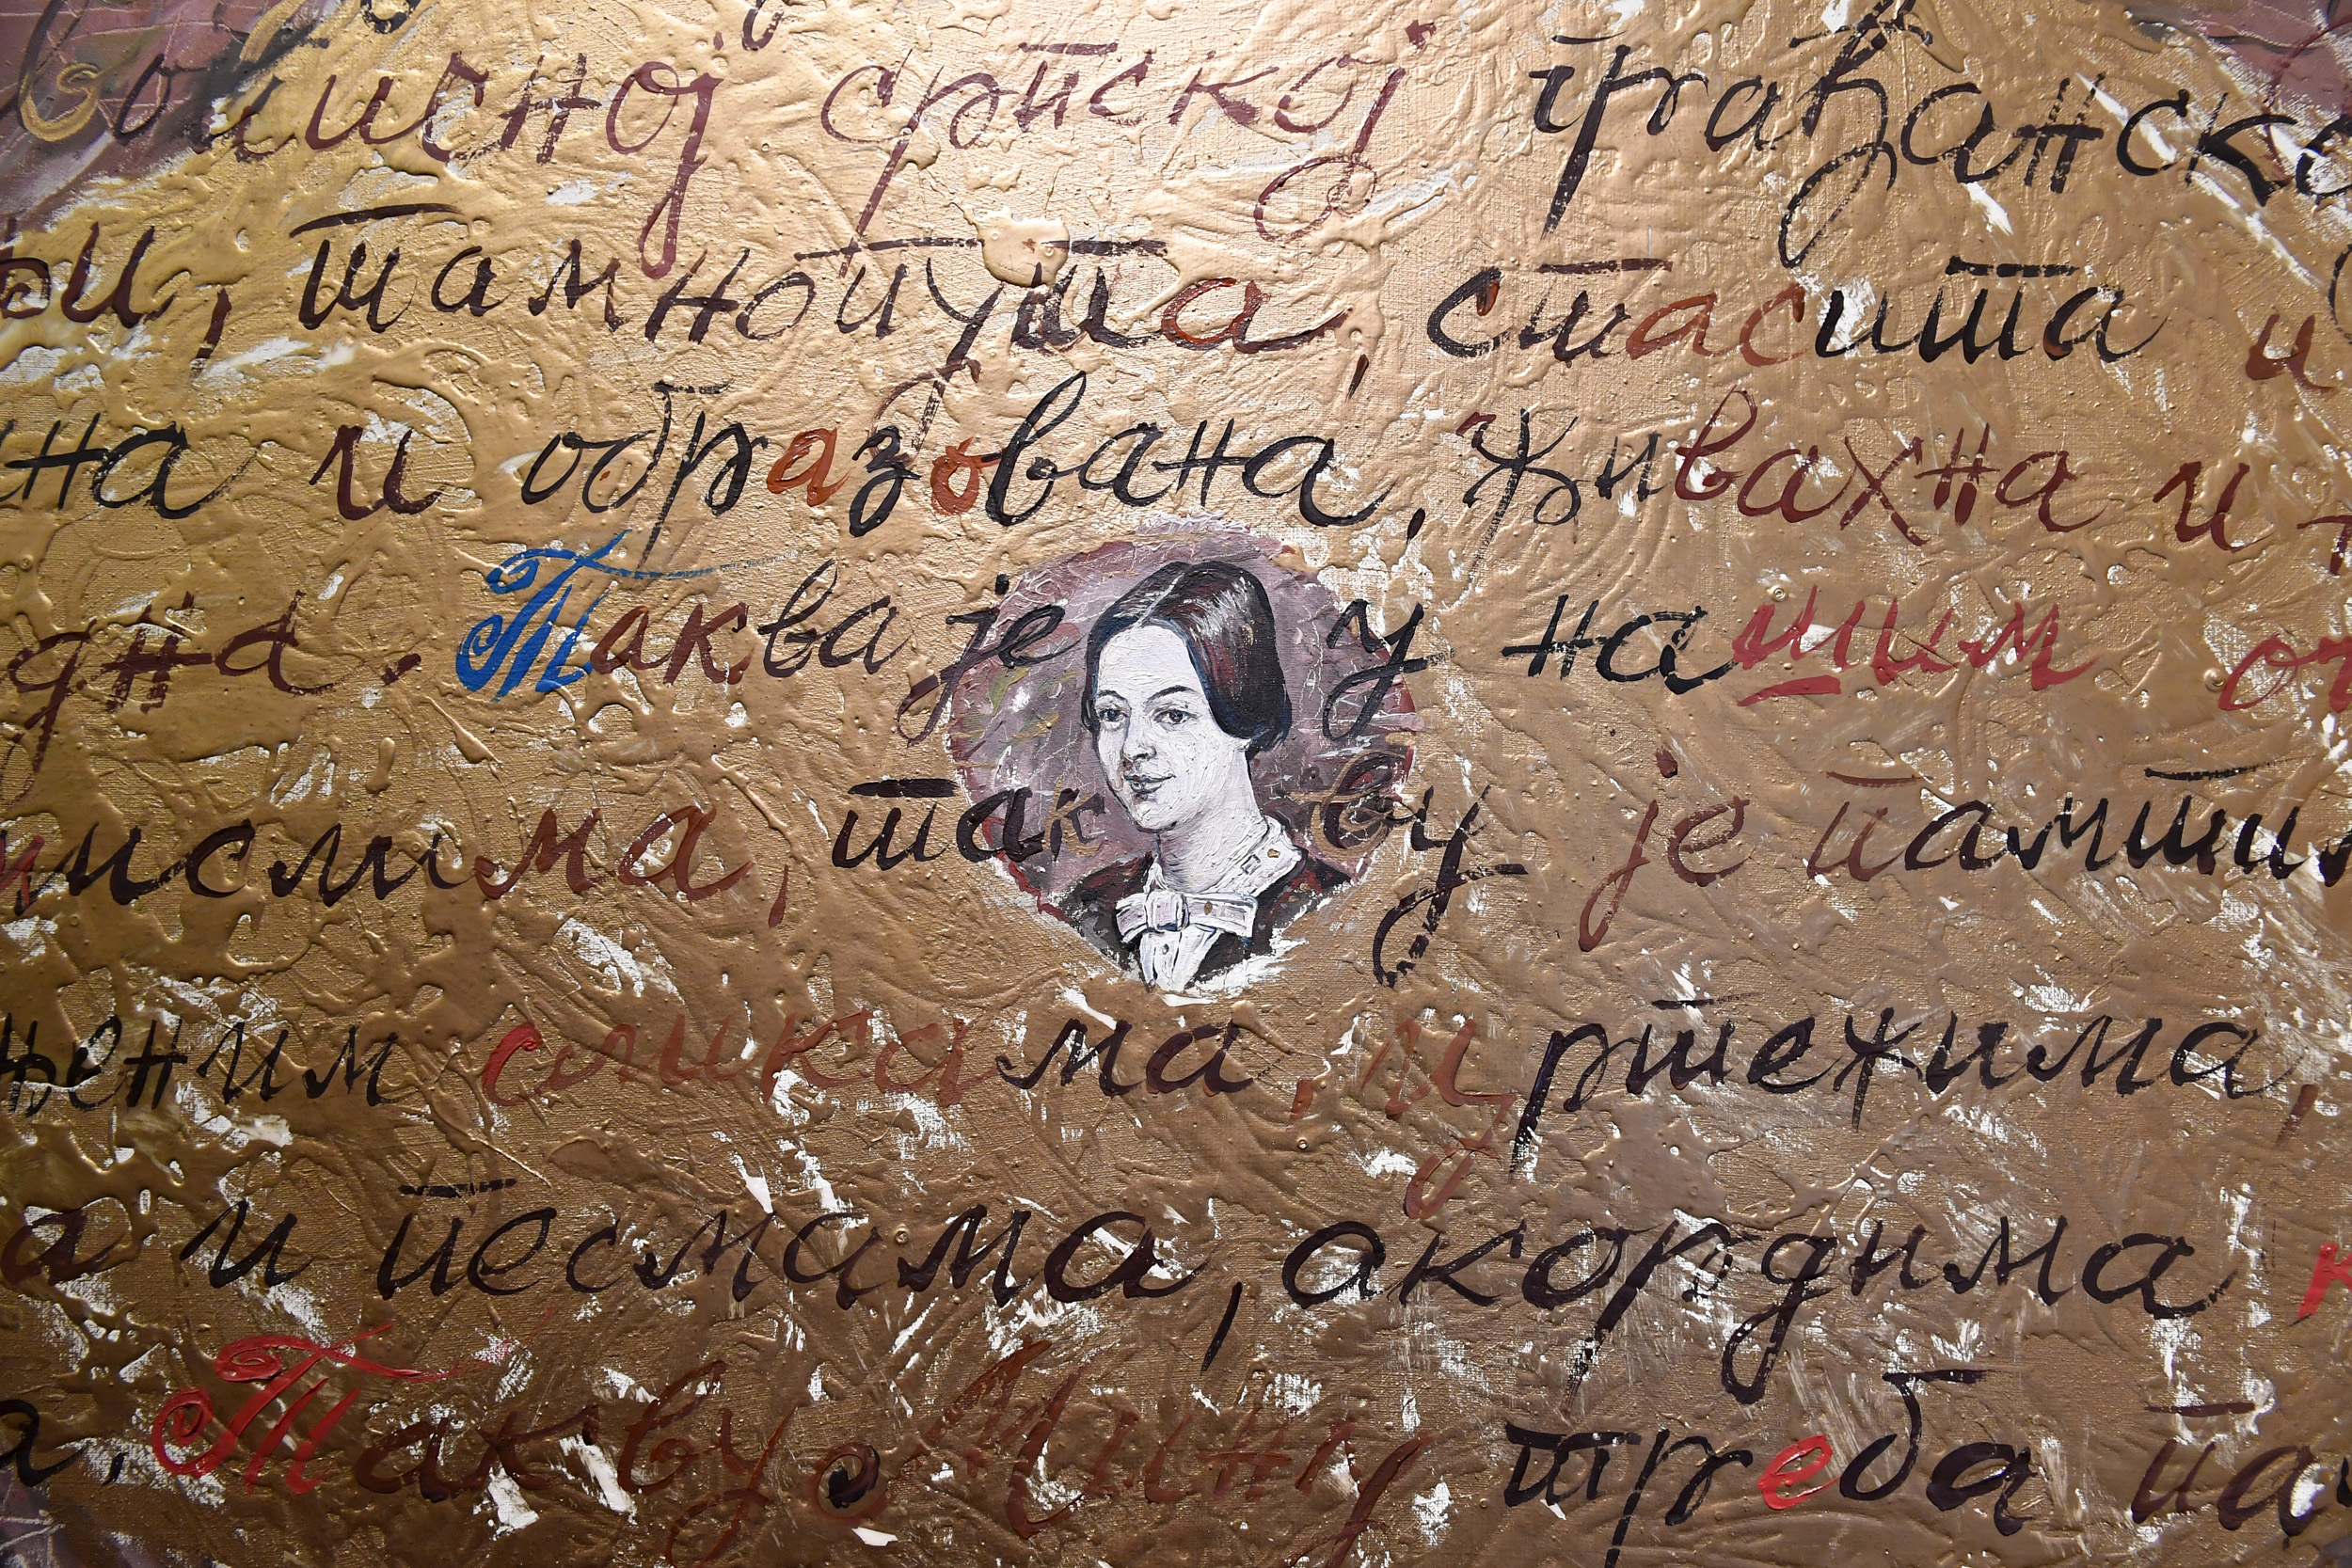 српској грађанско
, тамнопута, стасита и
на и образована, живахна и
дна. Таква је у нашим
мислима, такву је памтим
њеним сликама, и цртежима,
а и песмама, акордима
а. Такву Мину треба па